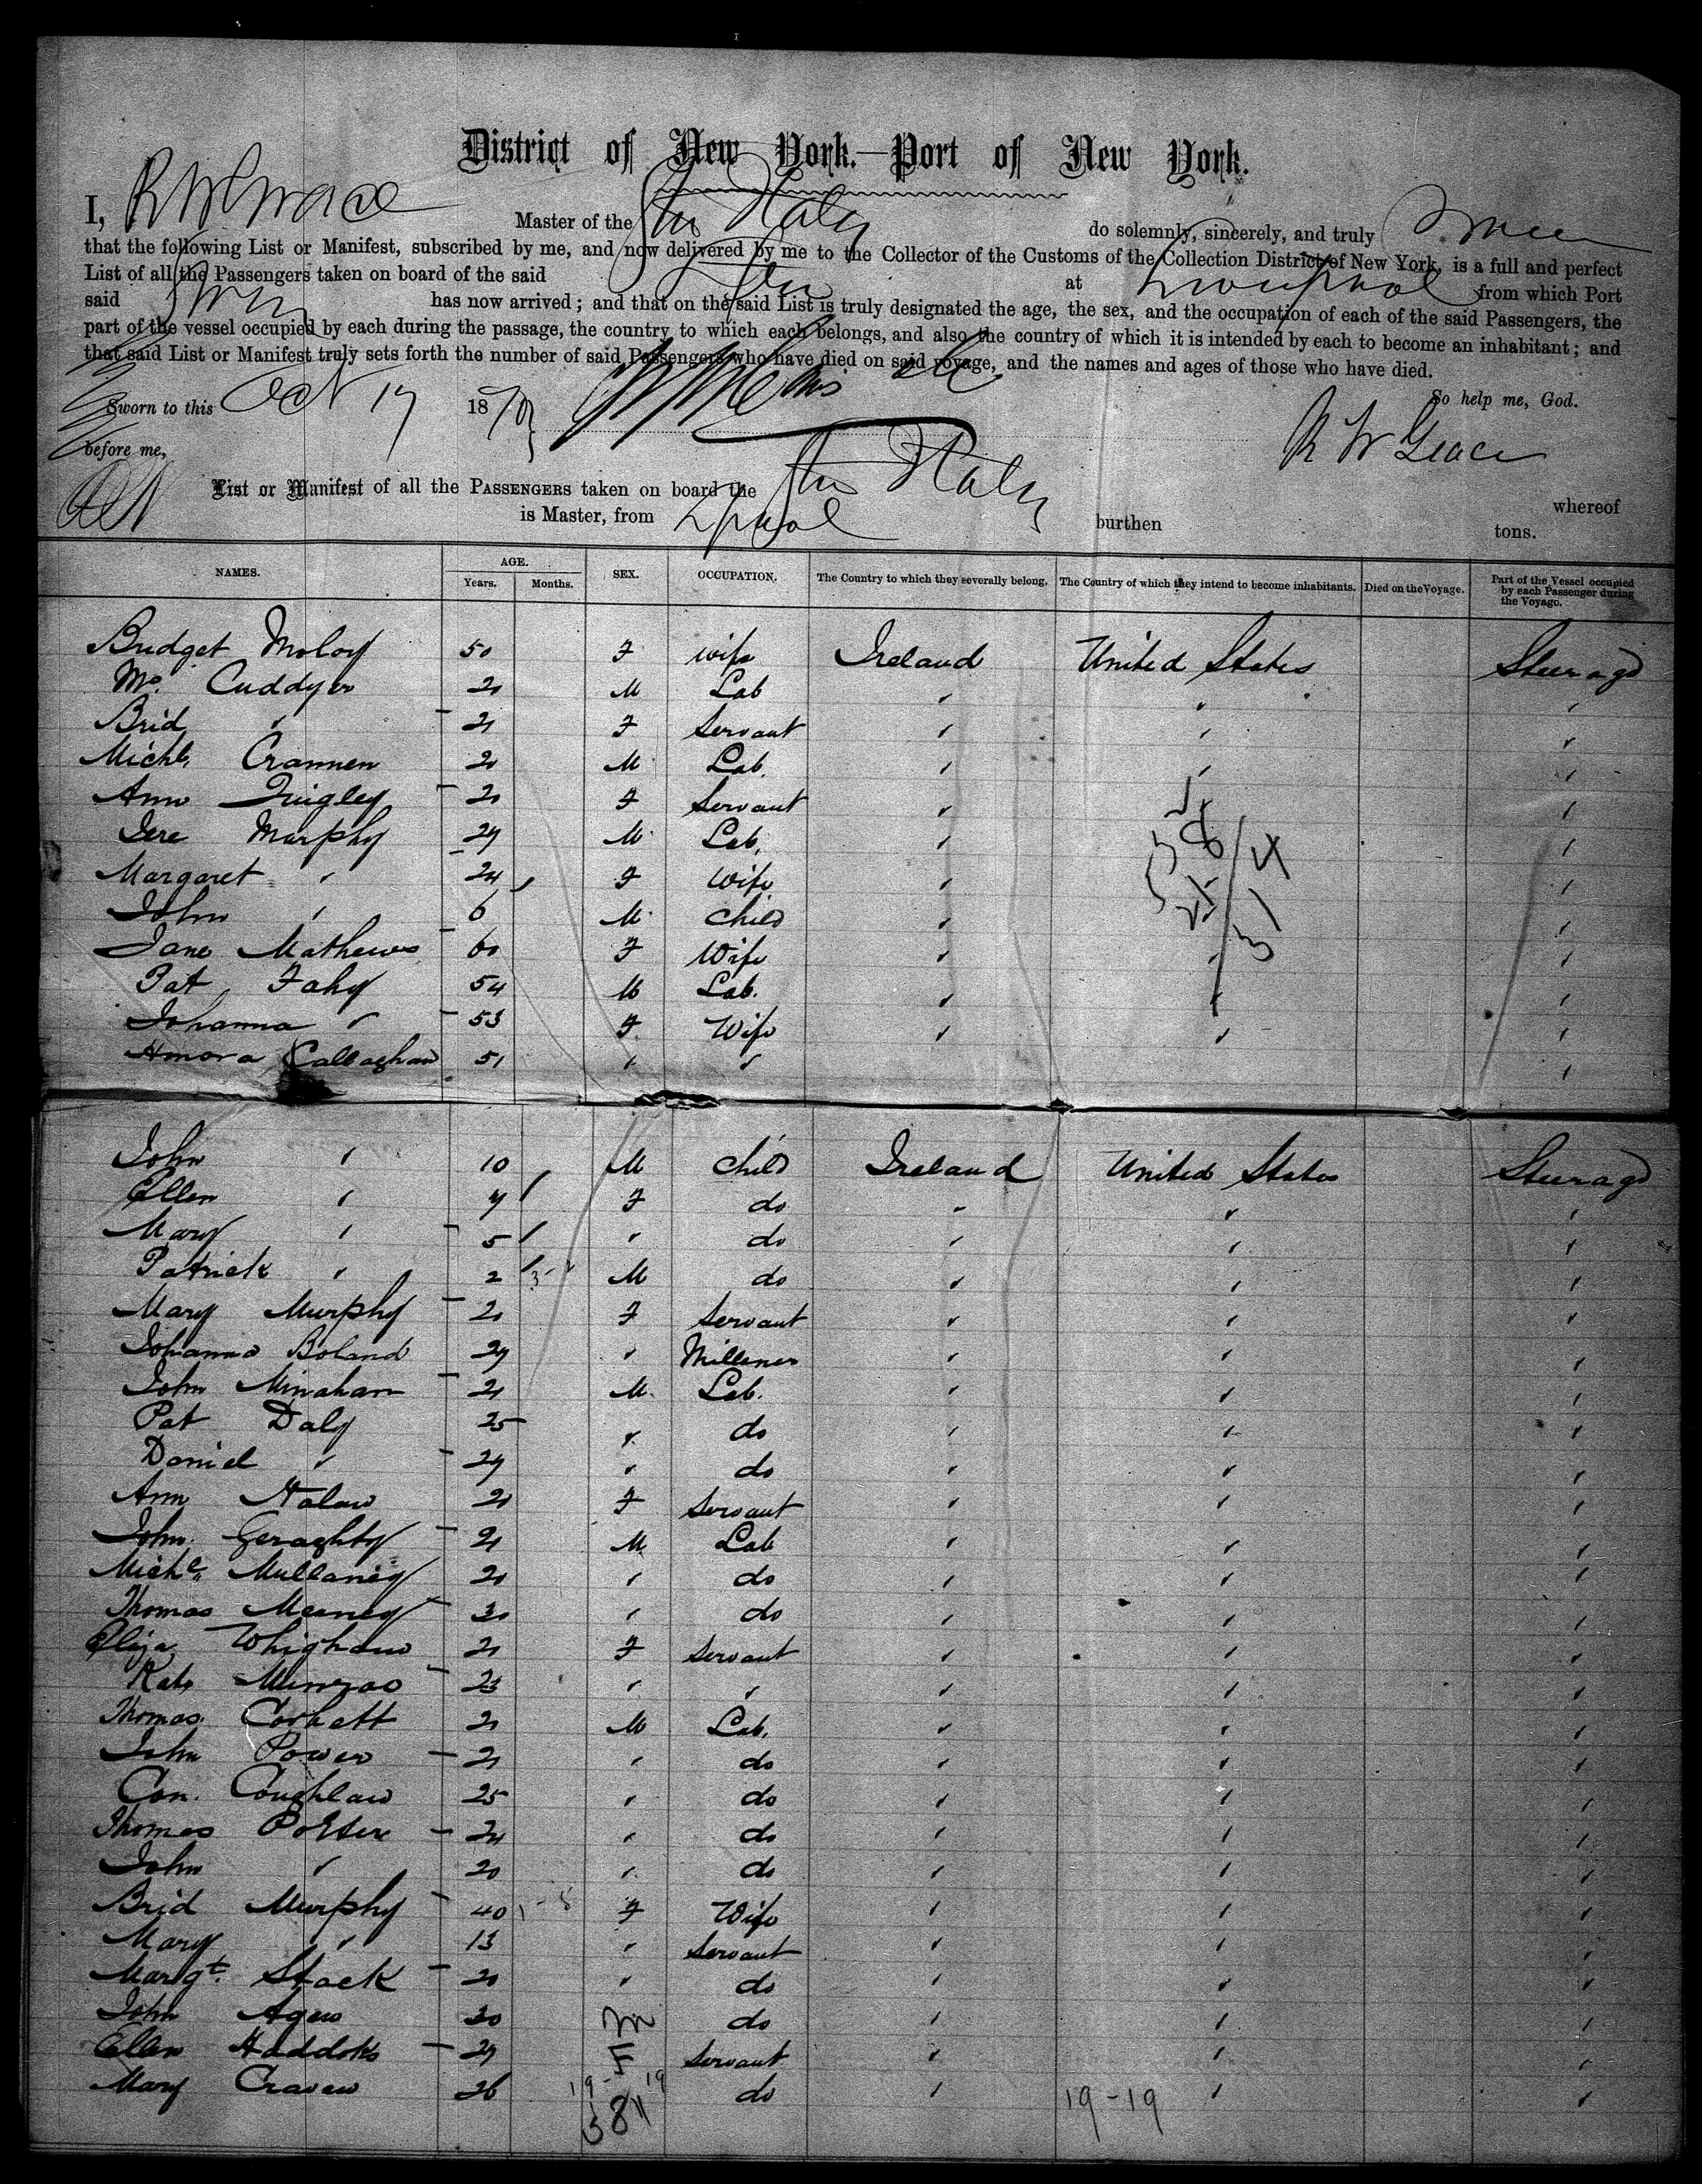 District of New York.—Port of New York.
I, R W Grace Master of the Str Italy do solemnly, sincerely, and truly Swear
that the following List or Manifest, subscribed by me, and now delivered by me to the Collector of the Customs of the Collection District of New York, is a full and perfect
List of all the Passengers taken on board of the said Str at Liverpool from which Port
said Str has now arrived; and that on the said List is truly designated the age, the sex, and the occupation of each of the said Passengers, the
part of the vessel occupied by each during the passage, the country to which each belongs, and also the country of which it is intended by each to become an inhabitant; and
that said List or Manifest truly sets forth the number of said Passengers who have died on said voyage, and the names and ages of those who have died.
Sworn to this Oct 17 1870 So help me, God.
before me, R W Grace
List or Manifest of all the PASSENGERS taken on board the Str Italy whereof
is Master, from Lpool burthen tons.
NAMES. AGE. Years. Months. SEX. OCCUPATION. The Country to which they severally belong. The Country of which they intend to become inhabitants. Died on the Voyage. Part of the Vessel occupied by each Passenger during the Voyage.
Bridget Moloy 50 F wife Ireland United States Steerage
Cuddyer 20 M Lab " " "
Brid " 21 F Servant " " "
Michl. Crannen 20 M Lab. " " "
Ann Quigley 20 F Servant " "
Jere Murphy 29 M Lab. " "
Margaret " 24 F Wife " "
John " 6 M Child " "
Jane Mathews 60 F Wife " " "
Pat Fahy 54 M Lab. " " "
Johanna " 53 F Wife " " "
Honora Callaghan 51 " " "
John " 10 M Child Ireland United States Steerage
Ellen " 7 F do " " "
Mary " 5 " do " " "
Patrick " 2 M do " " "
Mary Murphy 20 F Servant " " "
Johanna Boland 29 " Milliner " " "
John Minahan 21 M Lab. " " "
Pat Daly 25 " do " " "
Daniel " 29 " do " " "
Ann Nolan 20 F Servant " " "
John Geraghty 21 M Lab " " "
Michl. Mullaney 20 " do " " "
Thomas Meaney 30 " do " " "
Eliza Whigham 21 F Servant " " "
Kate Munroo 23 " " " " "
Thomas Corbett 21 M Lab. " " "
John Power 21 " do " " "
Con. Coughlan 25 " do " " "
Thomas 24 " do " " "
John " 20 " do " " "
Brid Murphy 40 F Wife " " "
Mary " 13 " Servant " " "
Margt. Stack 20 " do " " "
John Agew 20 M do " " "
Ellen Haddoks 29 F Servant " " "
Mary Craven 26 do " " "
19-19
38
19-19